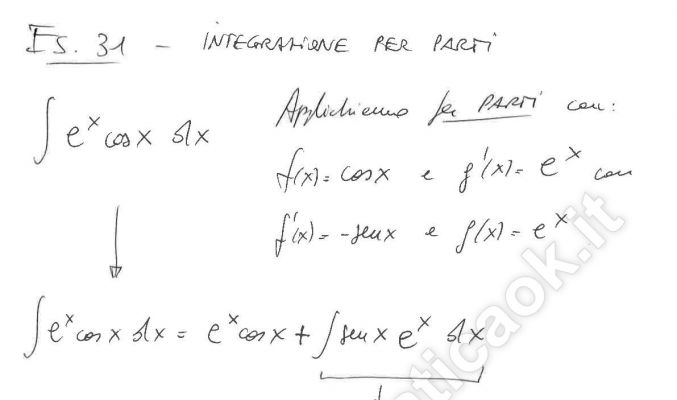 Es. 31 - INTEGRAZIONE PER PARTI
∫ e^x cos x dx
Applichiamo per PARTI con:
f(x) = cos x e g'(x) = e^x con
f'(x) = -sen x e g(x) = e^x
∫ e^x cos x dx = e^x cos x + ∫ sen x e^x dx
aticaok.it